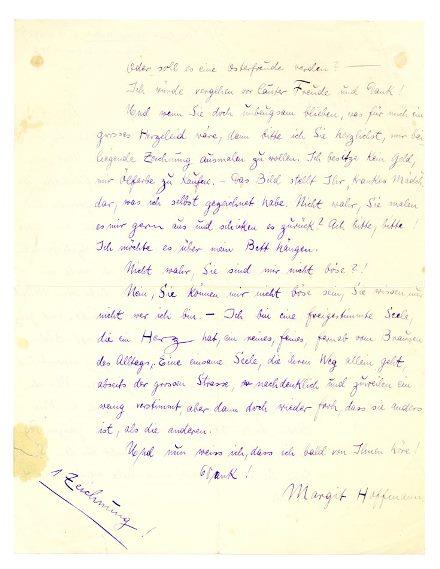 Oder soll es eine Osterfreude werden? —
Ich würde vergehen vor lauter Freude und Dank!
Und wenn Sie doch unbeugsam blieben, was für mich ein
grosses Herzeleid wäre, dann bitte ich Sie herzlichst, mir bei-
liegende Zeichnung ausmalen zu wollen. Ich besitze kein Geld,
mir Ölfarbe zu kaufen. – Das Bild stellt Ihr „krankes Mädch.
dar, was ich selbst gezeichnet habe. Nicht wahr, Sie malen
es mir gern aus und schicken es zurück? Ach bitte, bitte!
Ich möchte es über mein Bett hängen.
Nicht wahr, Sie sind mir nicht böse?!
Nein, Sie können mir nicht böse sein, Sie wissen nur
nicht wer ich bin. – Ich bin eine freigestimmte Seele,
die ein Herz hat, ein reines, feines, fernab vom Brausen
des Alltags. Eine einsame Seele, die ihren Weg allein geht,
abseits der grossen Strasse, nachdenklich und zuweilen ein
wenig verstimmt aber dann doch wieder froh, dass sie anders
ist, als die anderen.
Und nun weiss ich, dass ich bald von Ihnen höre!
Dank!
Margit Hoffmann
1 Zeichnung!